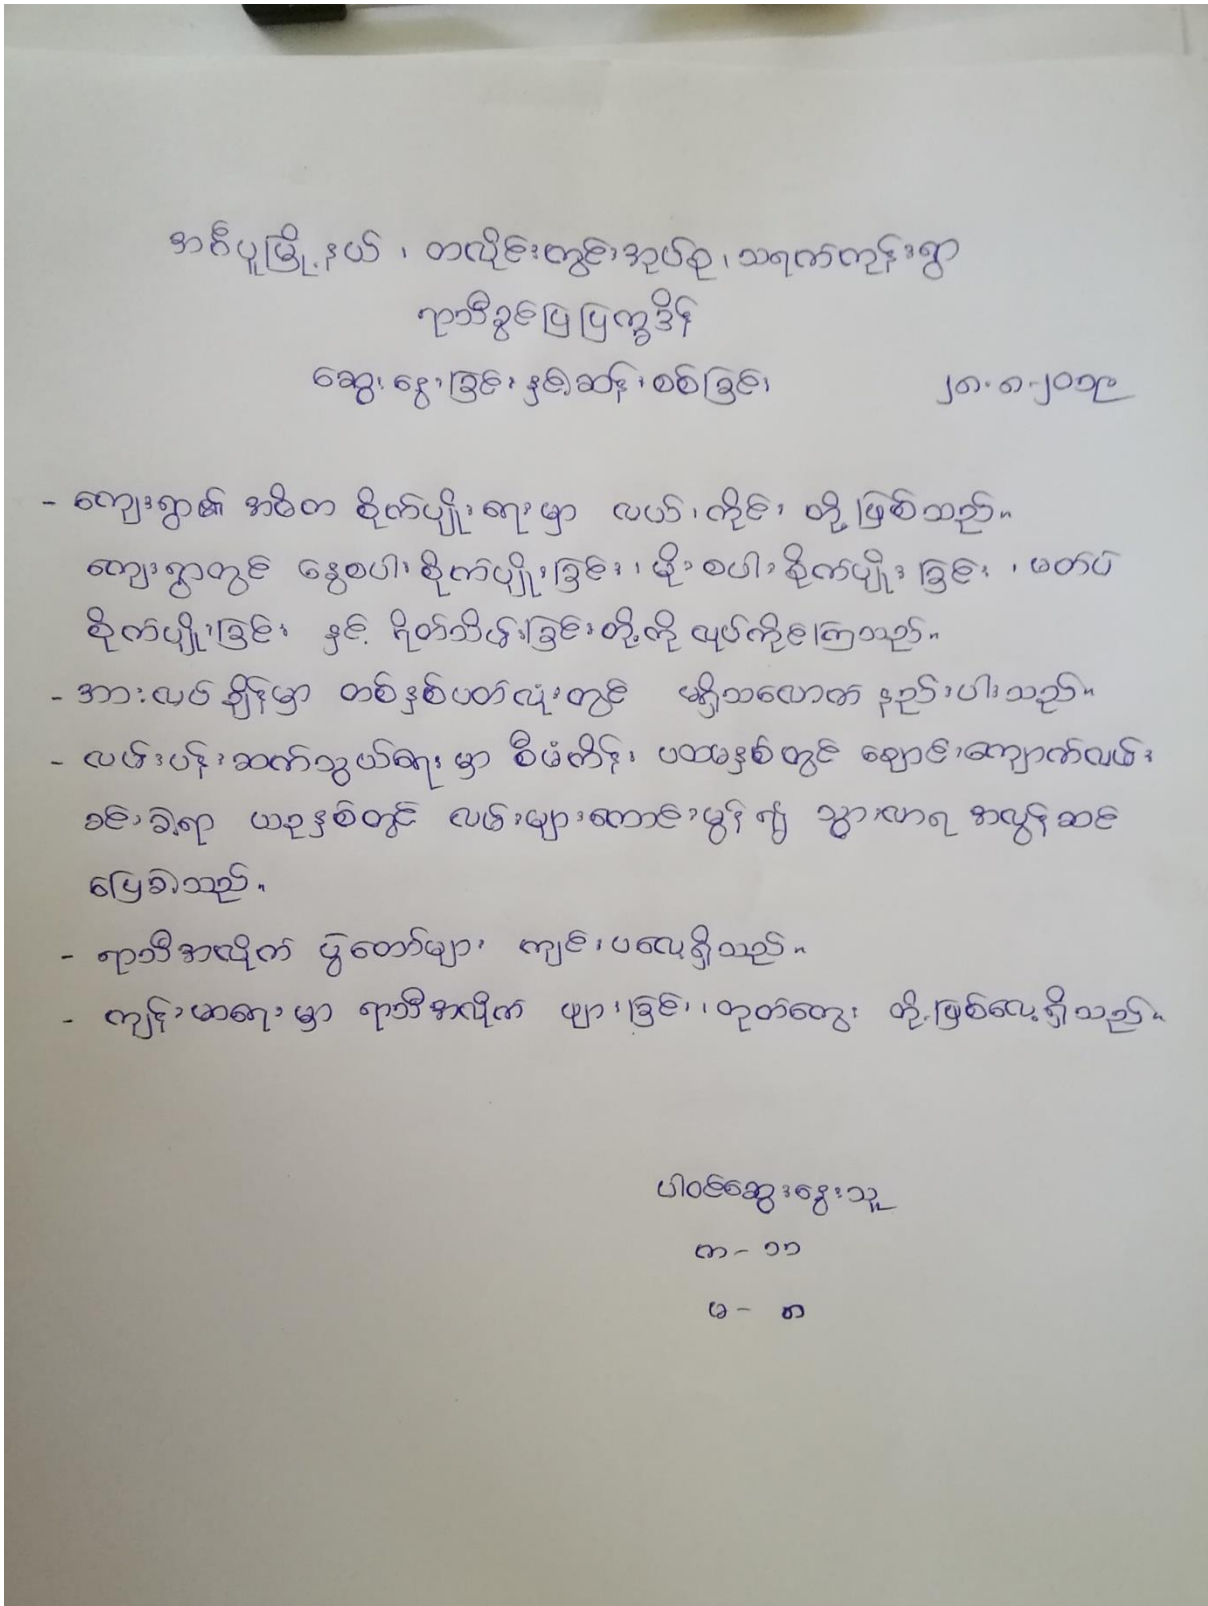 အင်္ဂပူမြို့နယ် ၊ တလိုင်းတွင်းအုပ်စု ၊ သရက်ကုန်းရွာ
ရာသီခွင်ပြပြက္ခဒိန်
ဆွေးနွေးခြင်းနှင့်ဆန်းစစ်ခြင်း ၂၈.၈.၂၀၁၉
- ကျေးရွာ၏ အဓိက စိုက်ပျိုးရေးမှာ လယ်၊ ကိုင်း တို့ဖြစ်သည်။
ကျေးရွာတွင် နွေစပါးစိုက်ပျိုးခြင်း၊ မိုးစပါးစိုက်ပျိုးခြင်း ၊ မတ်ပဲ
စိုက်ပျိုးခြင်း နှင့် ရိတ်သိမ်းခြင်းတို့ကို လုပ်ကိုင်ကြသည်။
- အားလပ်ချိန်မှာ တစ်နှစ်ပတ်လုံးတွင် မရှိသလောက် နည်းပါးသည်။
- လမ်းပန်းဆက်သွယ်ရေးမှာ စီမံကိန်း ပထမနှစ်တွင် ချောင်းကျောက်လမ်း
ခင်းခဲ့ရာ ယခုနှစ်တွင် လမ်းများကောင်းမွန်၍ သွားလာရ အလွန်အဆင်
ပြေခဲ့သည်။
- ရာသီအလိုက် ပွဲတော်များ ကျင်းပလေ့ရှိသည်။
- ကျန်းမာရေးမှာ ရာသီအလိုက် ဖျားခြင်း၊ တုတ်ကွေး တို့ဖြစ်လေ့ရှိသည်။
ပါဝင်ဆွေးနွေးသူ
ကာ - ၁၁
မ - ၈